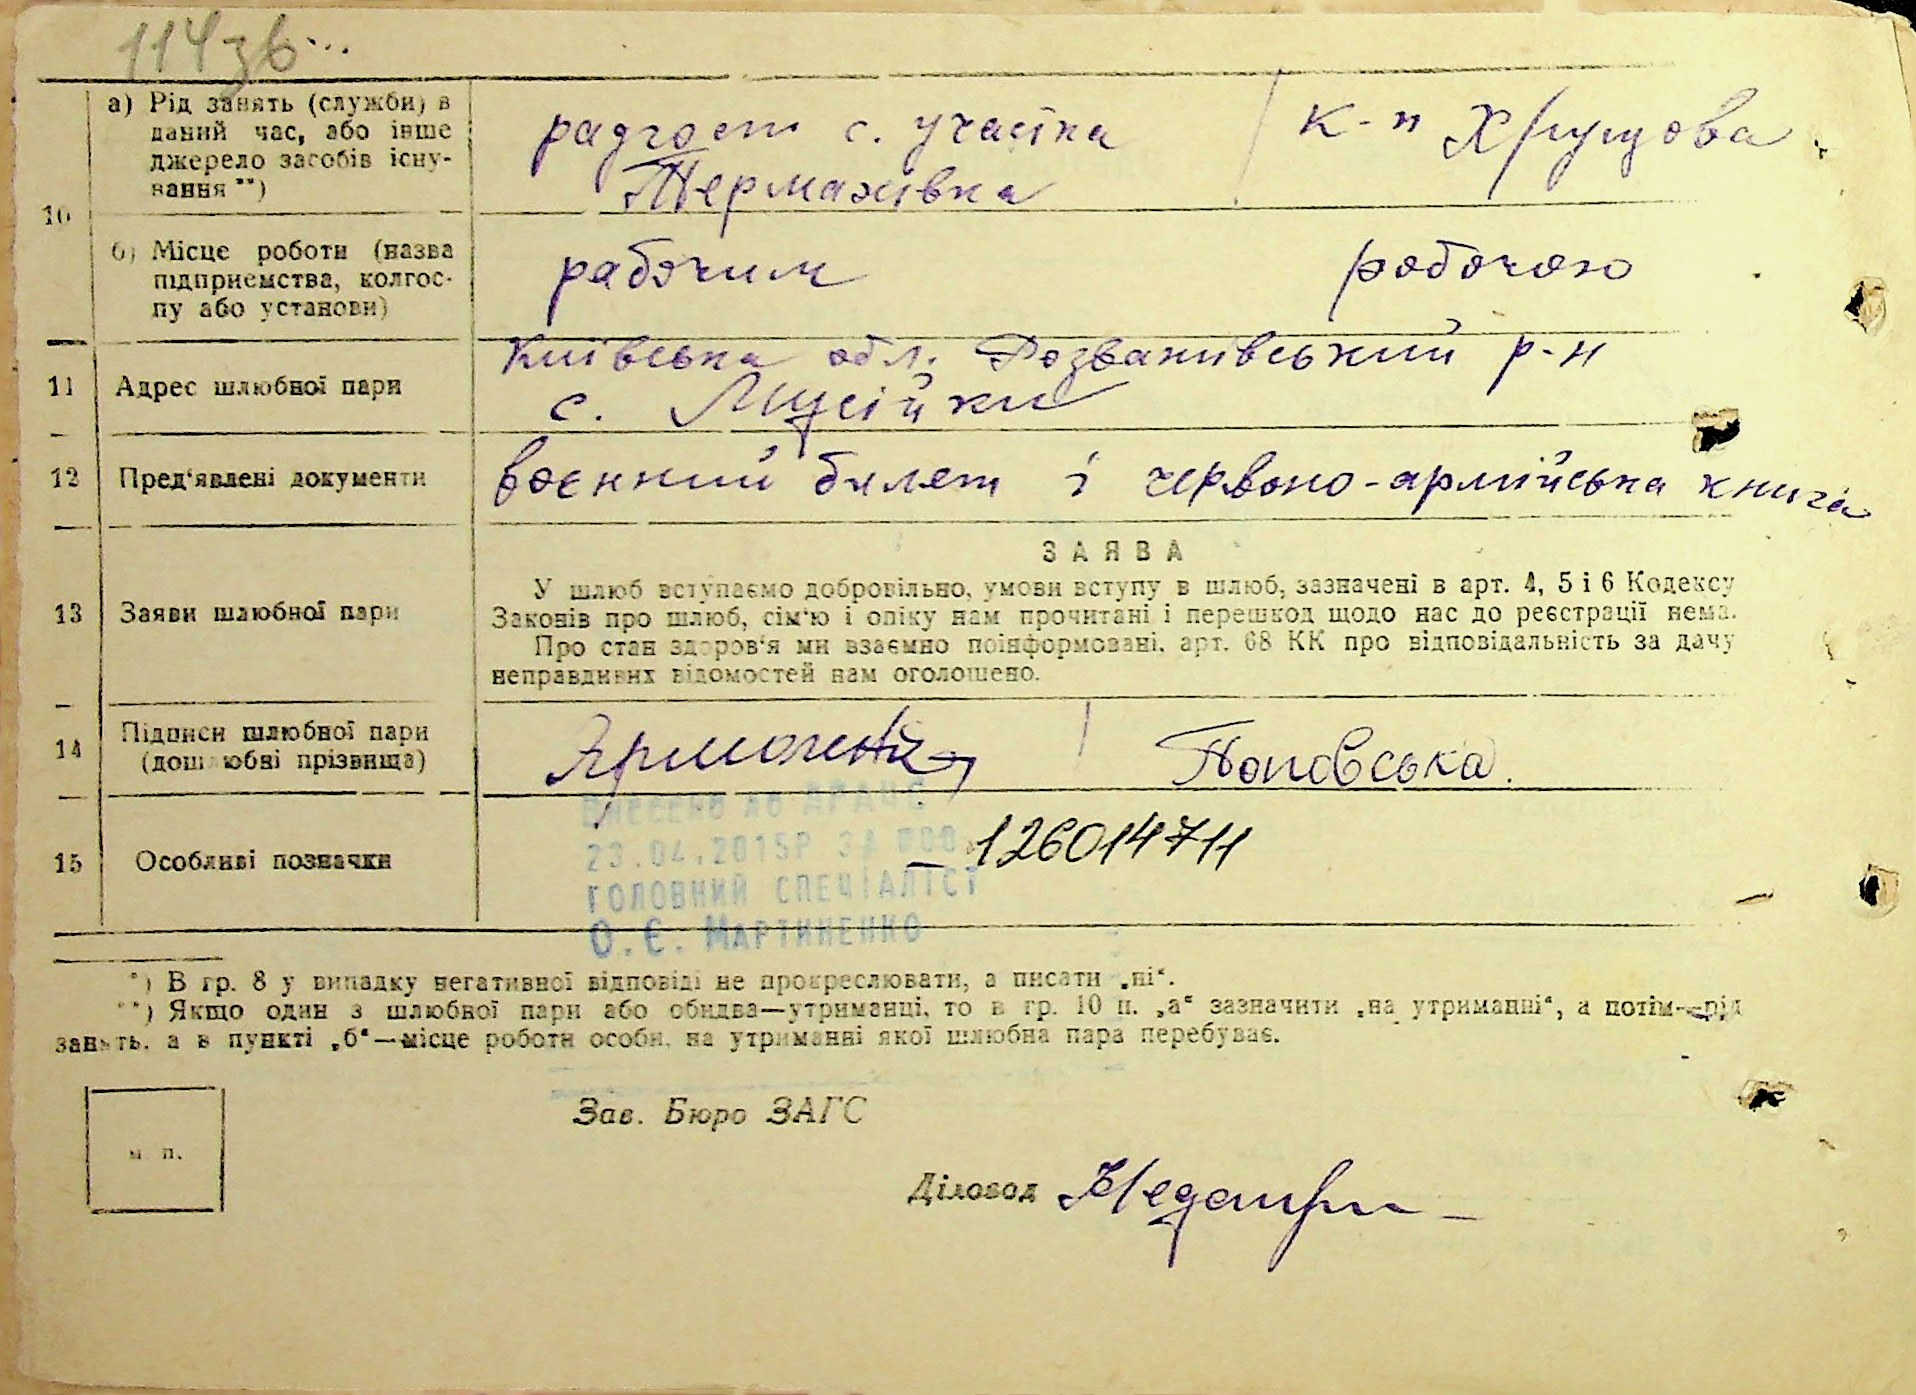 114зв...
10
а) Рід занять (служби) в
даний час, або інше
джерело засобів існу-
вання **)
радгосп с. участка
Термахівка
к-п Хрущова
б) Місце роботи (назва
підприємства, колгос-
пу або установи)
рабочим
робочою
11 Адрес шлюбної пари
Київська обл. Розважівський р-н
с. Мусійки
12 Пред'явлені документи
воєнний билет і червоно-армійська книга
13 Заяви шлюбної пари
ЗАЯВА
У шлюб вступаємо добровільно, умови вступу в шлюб, зазначені в арт. 4, 5 і 6 Кодексу
Законів про шлюб, сім'ю і опіку нам прочитані і перешкод щодо нас до реєстрації нема.
Про стан здоров'я ми взаємно поінформовані, арт. 68 КК про відповідальність за дачу
неправдивих відомостей нам оголошено.
14 Підписи шлюбної пари
(дошлюбні прізвища)
Поповська.
15 Особливі позначки
ВНЕСЕНО ДО ДРАЦС
23.04.2015Р ЗА
126014711
ГОЛОВНИЙ СПЕЦІАЛІСТ
О.Є. МАРТИНЕНКО
*) В гр. 8 у випадку негативної відповіді не прокреслювати, а писати „ні“.
**) Якщо один з шлюбної пари або обидва—утриманці, то в гр. 10 п. „а“ зазначити „на утриманні“, а потім—рід
занять, а в пункті „б“—місце роботи особи, на утриманні якої шлюбна пара перебуває.
м п.
Зав. Бюро ЗАГС
Діловод